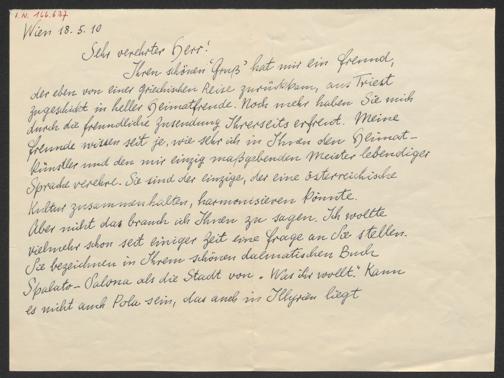 I.N. 166.637
Wien 18.5.10
Sehr verehrter Herr!
Ihren schönen "Gruß" hat mir ein Freund,
der eben von einer griechischen Reise zurückkam, aus Triest
zugeschickt in heller Heimatfreude. Noch mehr haben Sie mich
durch die freundliche Zusendung Ihrerseits erfreut. Meine
Freunde wissen seit je, wie sehr ich in Ihnen den Heimat-
künstler und den mir einzig maßgebenden Meister lebendiger
Sprache verehre. Sie sind der einzige, der eine österreichische
Kultur zusammenhalten, harmonisieren könnte.
Aber nicht das brauch ich Ihnen zu sagen. Ich wollte
vielmehr schon seit einiger Zeit eine Frage an Sie stellen.
Sie bezeichnen in Ihrem schönen dalmatischen Buch
Spalato-Salona als die Stadt von „Was ihr wollt." Kann
es nicht auch Pola sein, das auch in Illyrien liegt